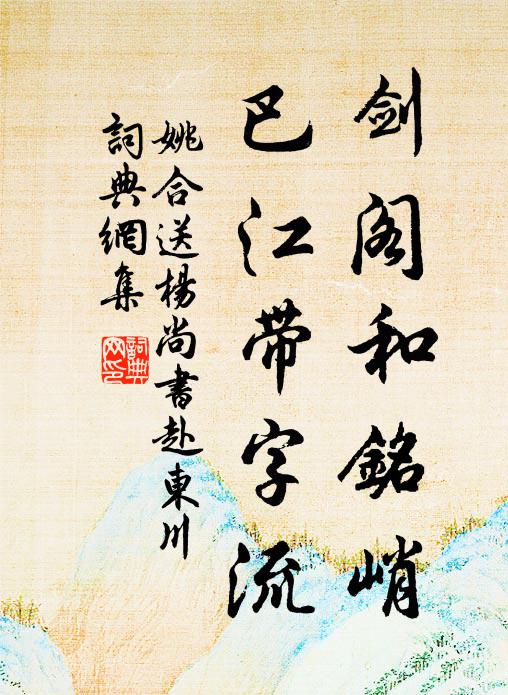 剑阁和銘峭
巴江带字流
姚合送楊尚書赴東川
詞典網集
詞典
网印